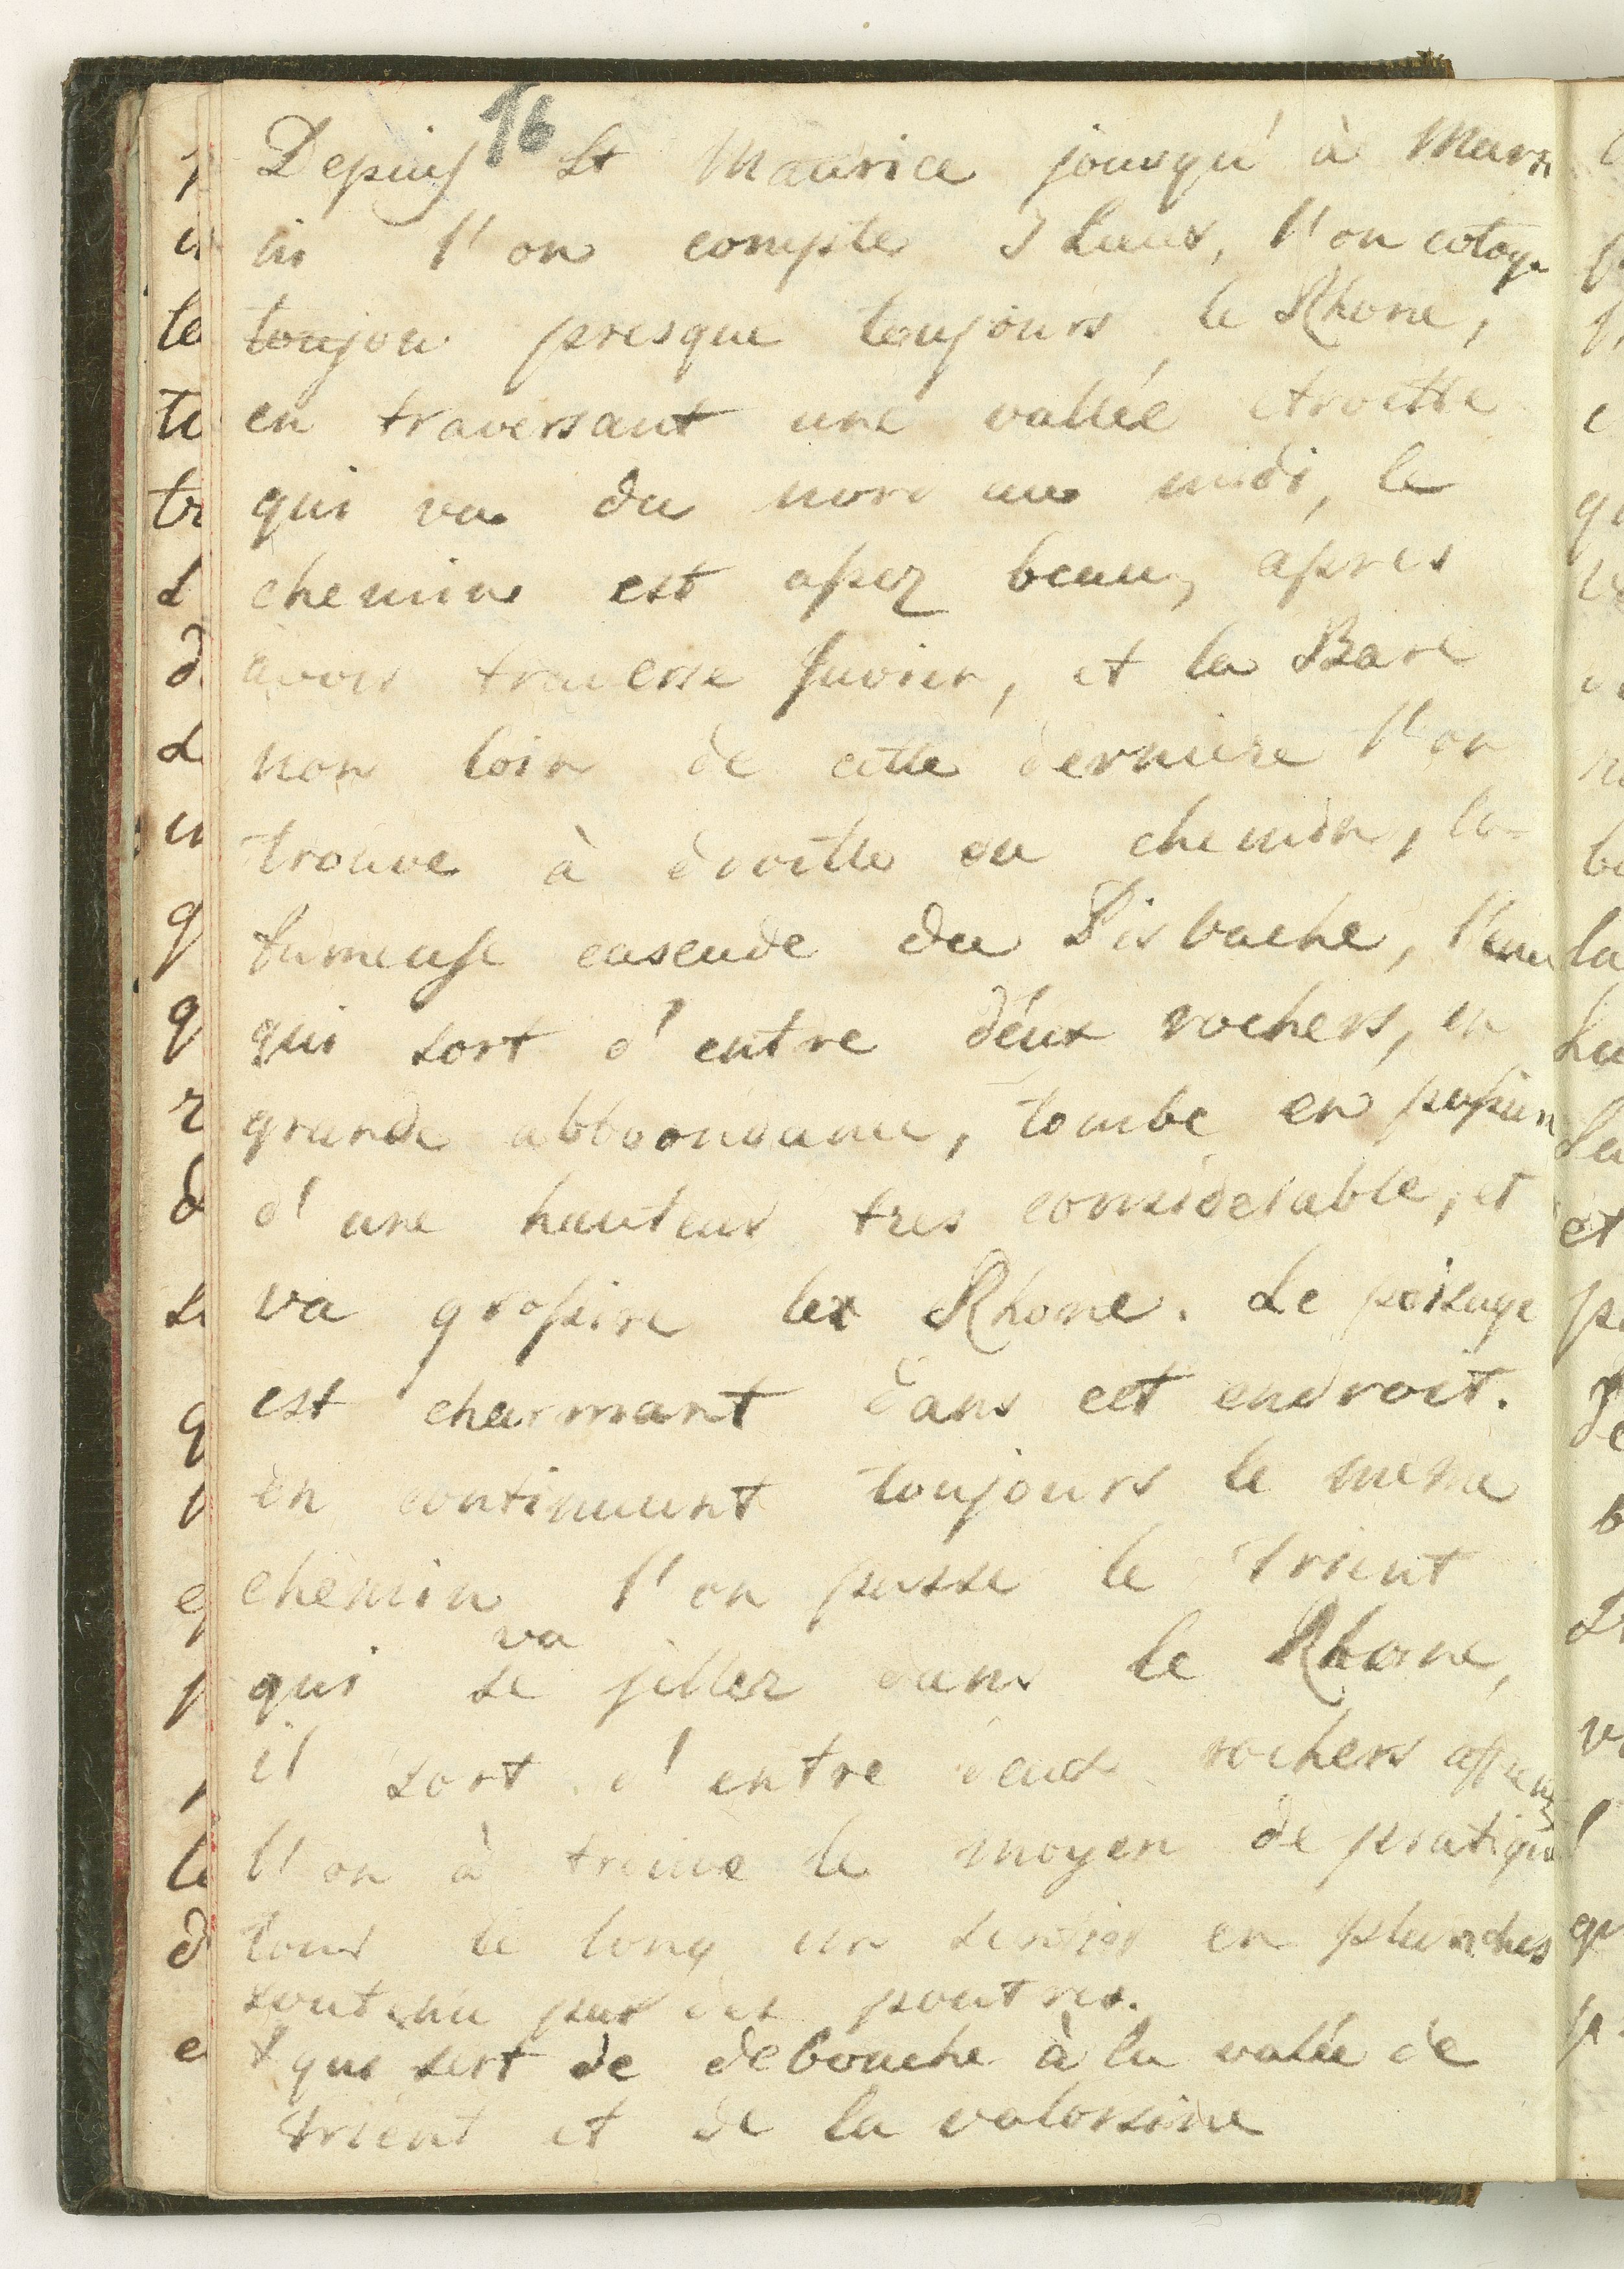 16
Depuis St Maurice jousqu'à Marti
ni l'on compte 3 lieux, l'on cotoye
toujou presque toujours le Rhone,
en traversant une vallée etroitte
qui va du nord au midi, le
chemin est assez beau, après
avoir traverse Juvien, et la Bare
non loin de cette derniere l'on
trouve à droitte du chemin, la
fameuse cascade du Pisvache, l'eau
qui sort d'entre déux rochers, en
grande abboondance, tombe en
d'une hauteur tres considerable, et
va grossire le Rhone. Le peisage
est charmant dans cet endroit.
en continuent toujours le meme
chemin l'on passe le Trient
va
qui se jetter dans le Rhone,
il sort d'entre deux rochers affreux
l'on à trouve le moyen de pratiqué
tout le long un sentier en planches
soutenu par des poutres.
+ qui sert de debouche à la valée de
trient et de la valorsine